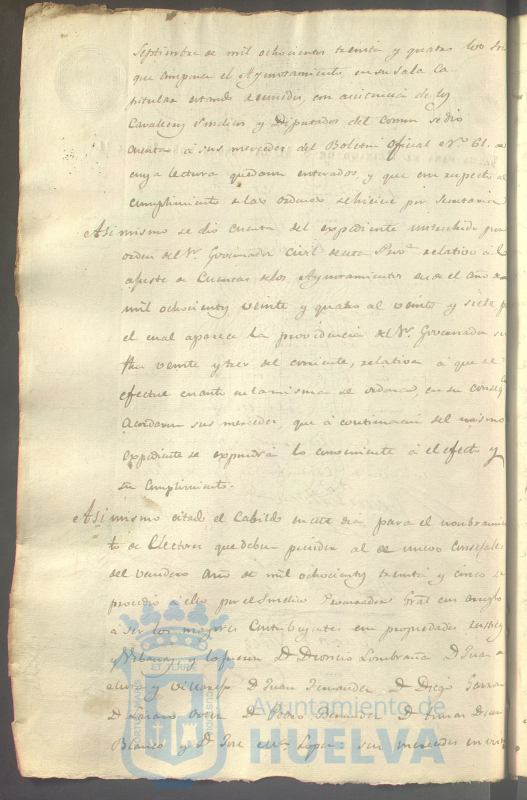 Septiembre de mil ochocientos treinta y quatro los Sres
que componen el Ayuntamiento, en su Sala Ca-
pitular estando reunidos, con asistencia de los
Cavalleros Sindicos y Diputados del comun se dio
cuenta á sus mercedes del Boletin oficial Nº 61. de
cuya lectura quedaron enterados, y que con respecto al
cumplimiento de las ordenes se hiciese por Secretaria
Asi mismo se dio cuenta del expediente instruhido por
orden del Sr. Governador Civil de esta Prova relativo á
ajuste de Cuentas de los Ayuntamientos desde el año de
mil ochocientos veinte y quatro al veinte y siete
el cual aparece la providencia del Sr. Governador su
fha veinte y tres del corriente, relativa á que se
efectue cuanto en la misma se ordena, en su conseqa
Acordaron sus mercedes, que á continuacion del mismo
expediente se expondrá lo conveniente á el efecto y
su cumplimiento.
Asi mismo citado el Cabildo en este dia para el nombramien
to de Electores que deben proceder al de nuevos Concejales
del venidero año de mil ochocientos treinta y cinco se
procedio á ello por el Sindico Procurador Gral con arreglo
á ser los mayores Contribuyentes en propiedades rusticas
y Urbanas y lo fueron Dn Dionicio Lombraña Dn Juan
y Villaseñor Dn Juan Fernandez Dn Diego Garzon
Dn Dn Pedro Bermudez Dn
Blanco y Dn Jose Lopez: sus mercedes
Ayuntamiento de
HUELVA